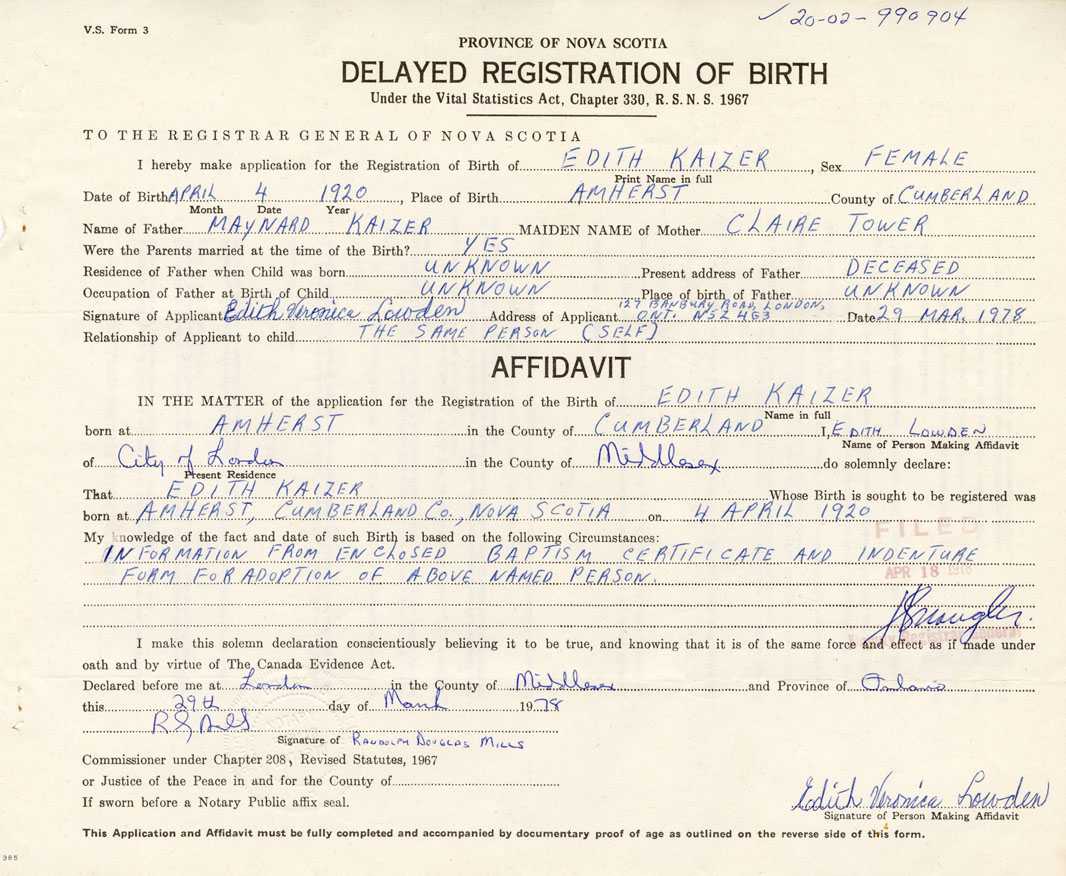 V.S. Form 3
✓ 20-02-990904
PROVINCE OF NOVA SCOTIA
DELAYED REGISTRATION OF BIRTH
Under the Vital Statistics Act, Chapter 330, R. S. N. S. 1967
TO THE REGISTRAR GENERAL OF NOVA SCOTIA
I hereby make application for the Registration of Birth of EDITH KAIZER, Sex FEMALE
Print Name in full
Date of Birth APRIL 4 1920, Place of Birth AMHERST County of CUMBERLAND
Month Date Year
Name of Father MAYNARD KAIZER MAIDEN NAME of Mother CLAIRE TOWER
Were the Parents married at the time of the Birth? YES
Residence of Father when Child was born UNKNOWN Present address of Father DECEASED
Occupation of Father at Birth of Child UNKNOWN Place of birth of Father UNKNOWN
127 BANBURY ROAD, LONDON,
Signature of Applicant Edith Veronica Lowden Address of Applicant ONT. N5Z 4G3 Date 29 MAR. 1978
Relationship of Applicant to child THE SAME PERSON (SELF)
AFFIDAVIT
IN THE MATTER of the application for the Registration of the Birth of EDITH KAIZER
Name in full
born at AMHERST in the County of CUMBERLAND I, EDITH LOWDEN
Name of Person Making Affidavit
of City of London in the County of Middlesex do solemnly declare:
Present Residence
That EDITH KAIZER Whose Birth is sought to be registered was
born at AMHERST, CUMBERLAND CO., NOVA SCOTIA on 4 APRIL 1920
FILED
My knowledge of the fact and date of such Birth is based on the following Circumstances:
INFORMATION FROM ENCLOSED BAPTISM CERTIFICATE AND INDENTURE
FORM FOR ADOPTION OF ABOVE NAMED PERSON.
APR 18 1978
I make this solemn declaration conscientiously believing it to be true, and knowing that it is of the same force and effect as if made under
Deputy Registrar General
oath and by virtue of The Canada Evidence Act.
Declared before me at London in the County of Middlesex and Province of Ontario
this 29th day of March 1978
Signature of RANDOLPH DOUGLAS MILLS
Commissioner under Chapter 208, Revised Statutes, 1967
or Justice of the Peace in and for the County of
If sworn before a Notary Public affix seal.
Edith Veronica Lowden
Signature of Person Making Affidavit
This Application and Affidavit must be fully completed and accompanied by documentary proof of age as outlined on the reverse side of this form.
385